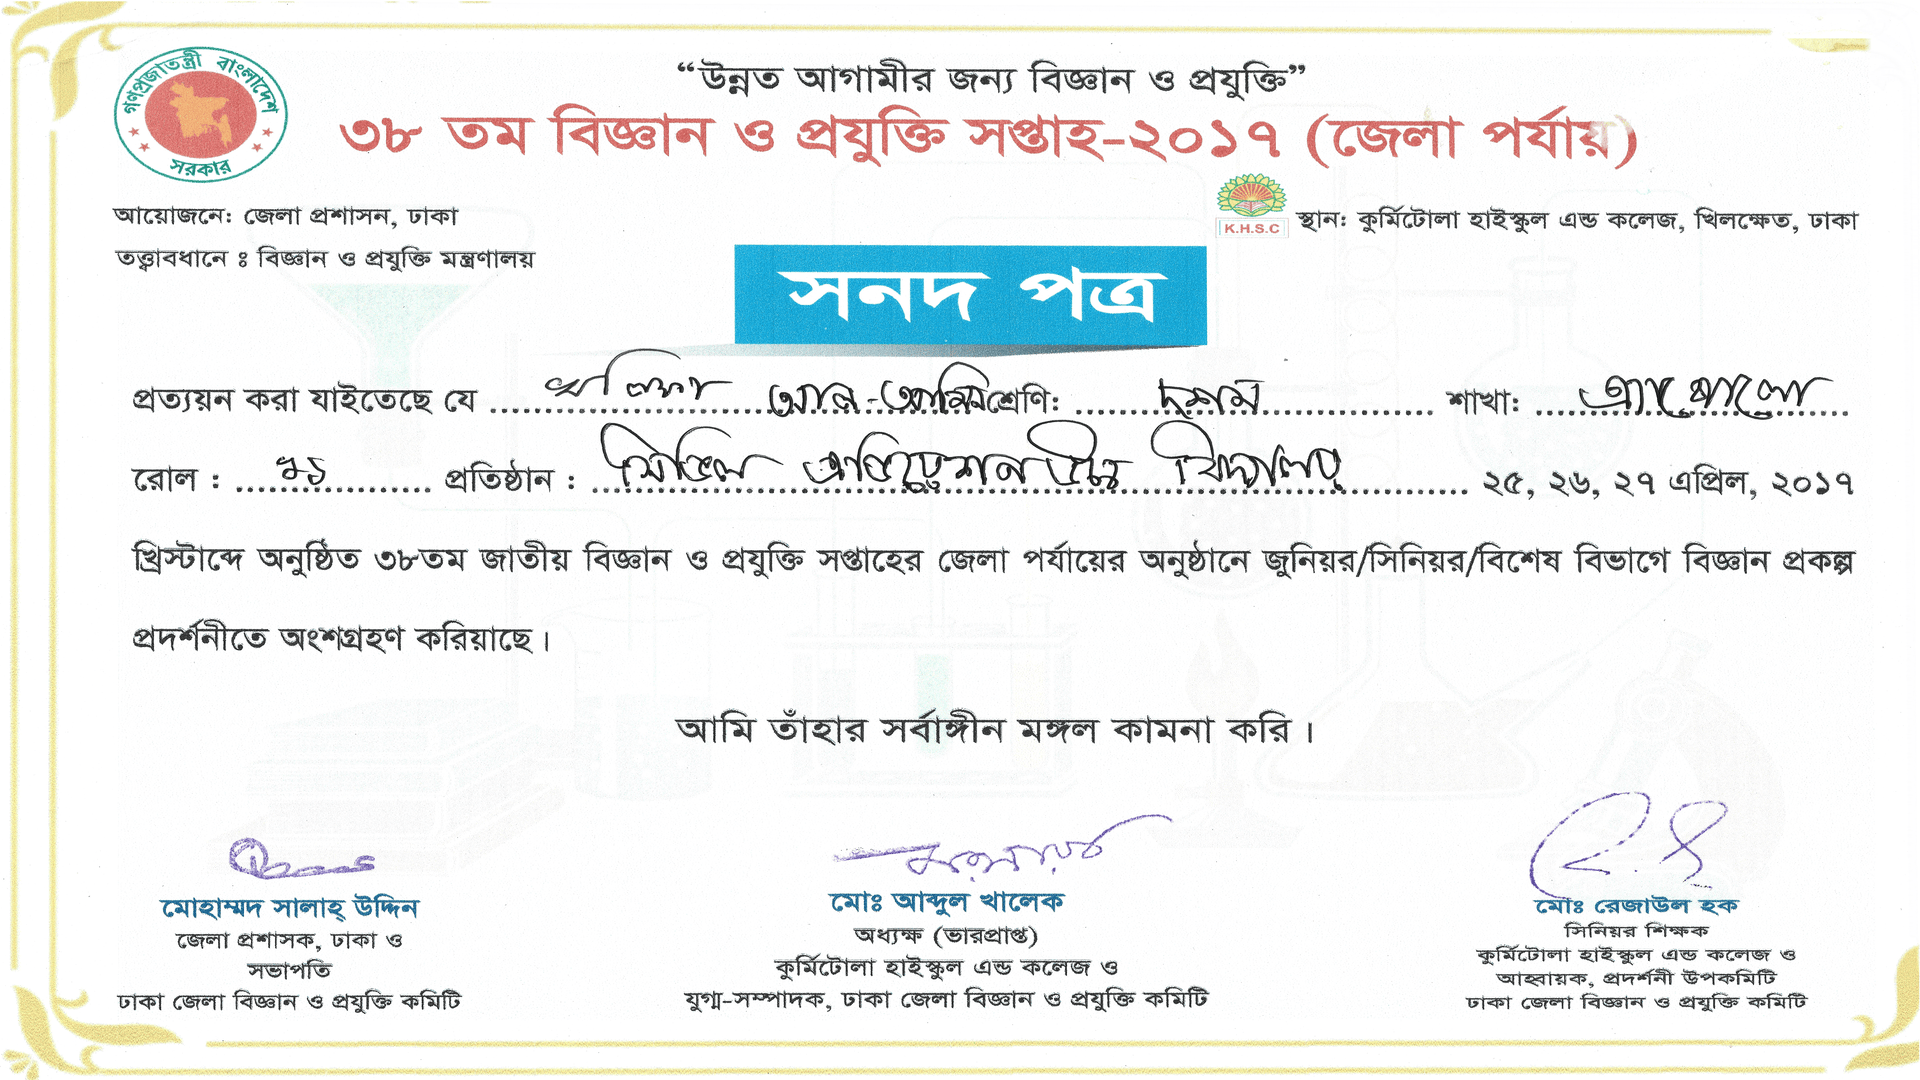 গণপ্রজাতন্ত্রী বাংলাদেশ
সরকার
“উন্নত আগামীর জন্য বিজ্ঞান ও প্রযুক্তি”
৩৮ তম বিজ্ঞান ও প্রযুক্তি সপ্তাহ-২০১৭ (জেলা পর্যায়)
আয়োজনে: জেলা প্রশাসন, ঢাকা
K.H.S.C স্থান: কুর্মিটোলা হাইস্কুল এন্ড কলেজ, খিলক্ষেত, ঢাকা
তত্ত্বাবধানে ঃ বিজ্ঞান ও প্রযুক্তি মন্ত্রণালয়
সনদ পত্র
প্রত্যয়ন করা যাইতেছে যে খলিফা আল-আমিন শ্রেণি: দশম শাখা: অ্যাপোলো
রোল : প্রতিষ্ঠান : সিভিল এভিয়েশন উচ্চ বিদ্যালয় ২৫, ২৬, ২৭ এপ্রিল, ২০১৭
খ্রিস্টাব্দে অনুষ্ঠিত ৩৮তম জাতীয় বিজ্ঞান ও প্রযুক্তি সপ্তাহের জেলা পর্যায়ের অনুষ্ঠানে জুনিয়র/সিনিয়র/বিশেষ বিভাগে বিজ্ঞান প্রকল্প
প্রদর্শনীতে অংশগ্রহণ করিয়াছে।
আমি তাঁহার সর্বাঙ্গীন মঙ্গল কামনা করি।
মোহাম্মদ সালাহ্ উদ্দিন
জেলা প্রশাসক, ঢাকা ও
সভাপতি
ঢাকা জেলা বিজ্ঞান ও প্রযুক্তি কমিটি
মোঃ আব্দুল খালেক
অধ্যক্ষ (ভারপ্রাপ্ত)
কুর্মিটোলা হাইস্কুল এন্ড কলেজ ও
যুগ্ম-সম্পাদক, ঢাকা জেলা বিজ্ঞান ও প্রযুক্তি কমিটি
মোঃ রেজাউল হক
সিনিয়র শিক্ষক
কুর্মিটোলা হাইস্কুল এন্ড কলেজ ও
আহ্বায়ক, প্রদর্শনী উপকমিটি
ঢাকা জেলা বিজ্ঞান ও প্রযুক্তি কমিটি